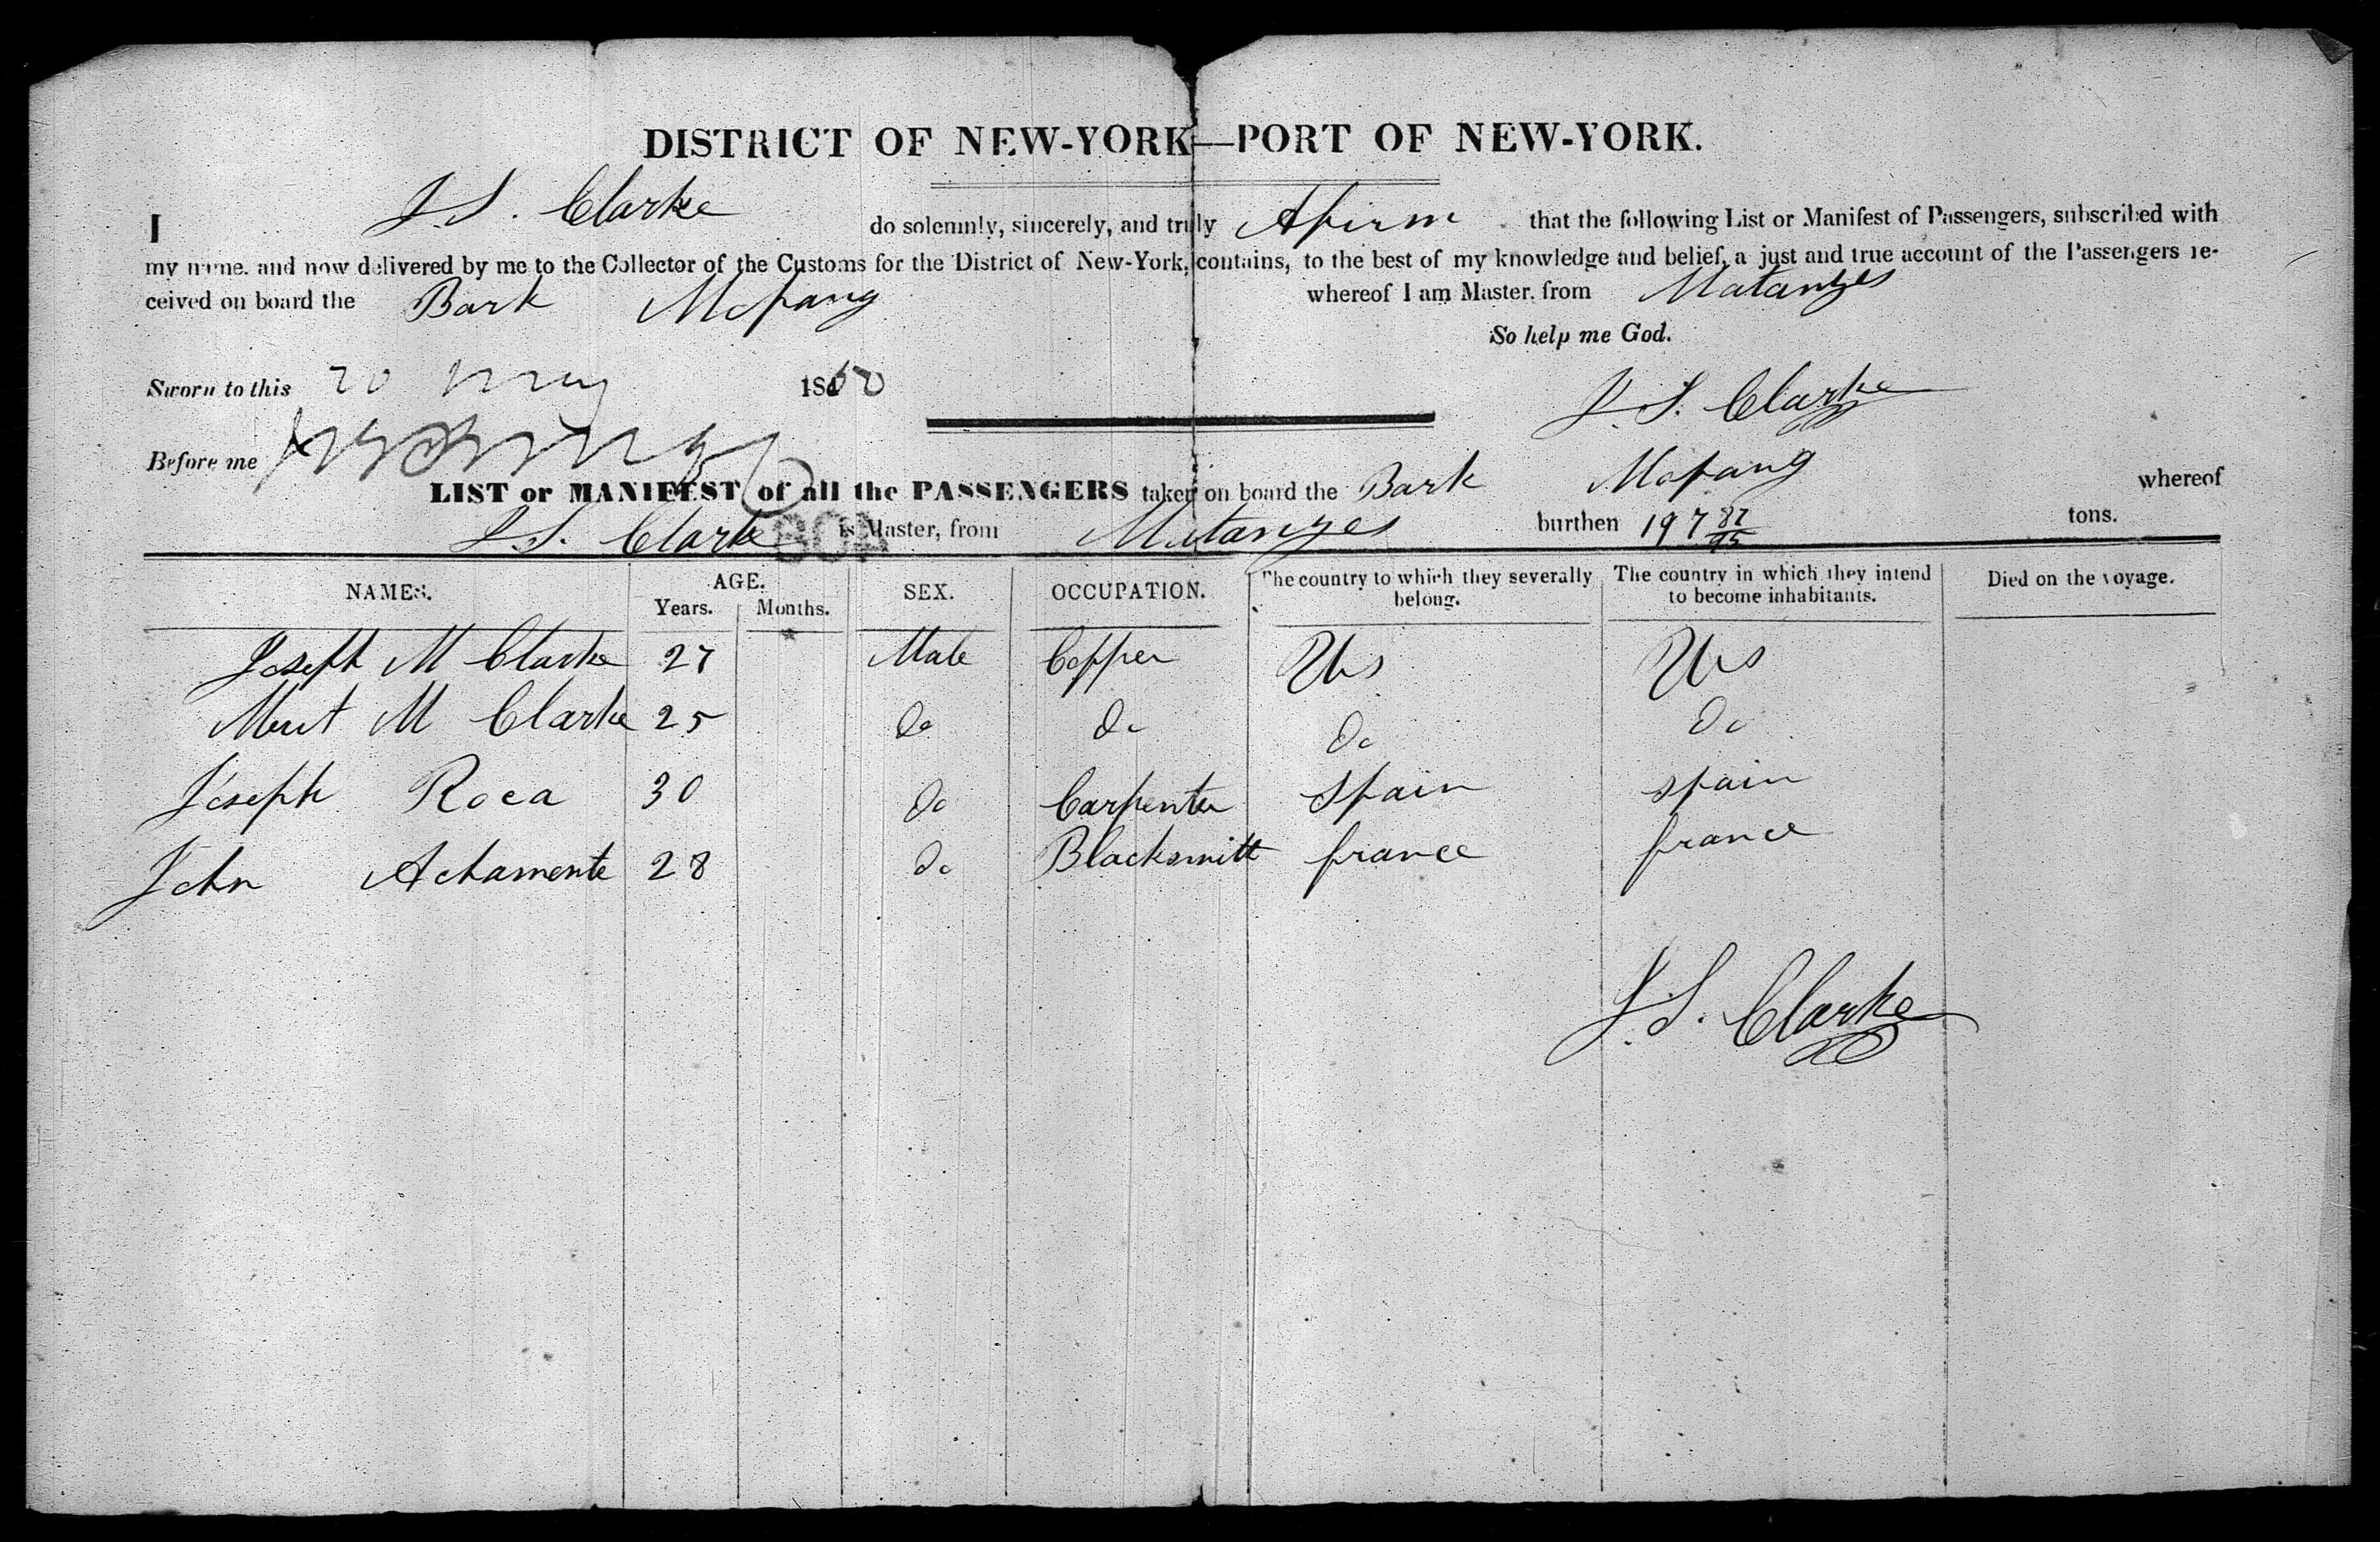 DISTRICT OF NEW-YORK—PORT OF NEW-YORK.
I J. S. Clarke do solemnly, sincerely, and truly Afirm that the following List or Manifest of Passengers, subscribed with
my name, and now delivered by me to the Collector of the Customs for the District of New-York, contains, to the best of my knowledge and belief, a just and true account of the Passengers re-
ceived on board the Bark Mopang whereof I am Master, from Matanzes
So help me God.
Sworn to this 20 May 1860
J. S. Clarke
Before me
LIST or MANIFEST of all the PASSENGERS taken on board the Bark Mopang whereof
J. S. Clarke is Master, from Matanzes burthen 197 87/95 tons.
NAMES. AGE. Years. Months. SEX. OCCUPATION. The country to which they severally belong. The country in which they intend to become inhabitants. Died on the voyage.
Joseph M Clarke 27 Male Copper Us Us
M Clarke 25 Do Do Do Do
Joseph Roca 30 Do Carpenter Spain spain
John Achamente 28 Do Blacksmith france france
J. S. Clarke